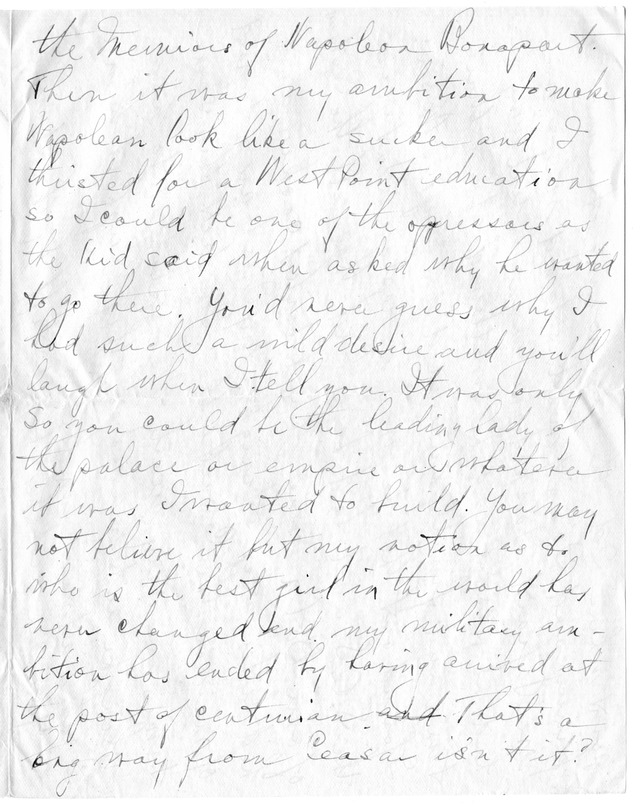 the Memiors of Napoleon Bonapart.
Then it was my ambition to make
Napolean look like a sucker and I
thirsted for a West Point education
so I could be one of the opressors as
the kid said when asked why he wanted
to go there. You'd never guess why I
had such a wild desire and you'll
laugh when I tell you. It was only
So you could be the leading lady of
the palace or empire or whatever
it was I wanted to build. You may
not believe it but my notion as to
who is the best girl in the world has
never changed and my military am-
bition has ended by having arrived at
the post of centurian. and That's a
long way from Ceasar isn't it?